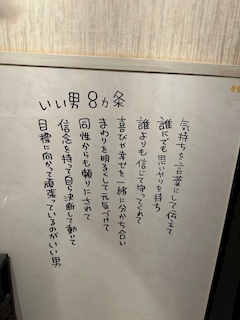 いい男 8ヵ条
気持ちを言葉にして伝えて
誰にでも思いやりを持ち
誰よりも信じて守ってくれて
喜びや幸せを一緒に分かち合い
まわりを明るくして元気づけて
同性からも頼りにされて
信念を持って自ら決断して動いて
目標に向かって頑張っているのがいい男